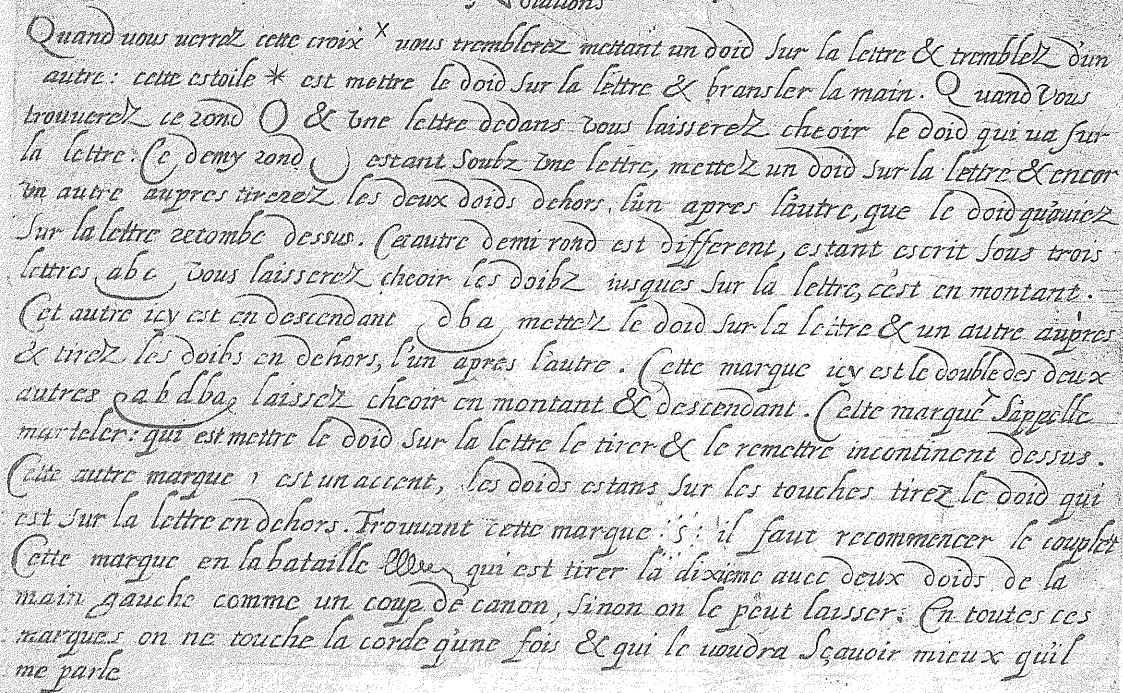 Quand vous verrez cette croix x vous tremblerez mettant un doid sur la lettre & tremblez d'un
autre: cette estoile * est mettre le doid sur la lettre & bransler la main. Quand vous
trouuerez ce rond O & vne lettre dedans vous laisserez cheoir le doid qui ua sur
la lettre. Ce demy rond estant soubz vne lettre, mettez un doid sur la lettre & encor
vn autre aupres tirerez les deux doids dehors, l'un apres l'autre, que le doid qu'auiez
sur la lettre retombe dessus. Cet autre demi rond est different, estant escrit sous trois
lettres abc vous laisserez cheoir les doibz iusques sur la lettre, c'est en montant.
Cet autre icy est en descendant dba mettez le doid sur la lettre & un autre aupres
& tirez les doibs en dehors, l'un apres l'autre. Cette marque icy est le double des deux
autres abdba, laissez cheoir en montant & descendant. Cette marque ' s'appelle
marteler: qui est mettre le doid sur la lettre le tirer & le remettre incontinent dessus.
Cette autre marque ) est un accent, les doids estans sur les touches tirez le doid qui
est sur la lettre en dehors. Trouuant cette marque :s: il faut recommencer le couplet
Cette marque en la bataille qui est tirer la dixieme auec deux doids de la
main gauche comme un coup de canon, sinon on le peut laisser: En toutes ces
marques on ne touche la corde q'une fois & qui le voudra sçauoir mieux qu'il
me parle